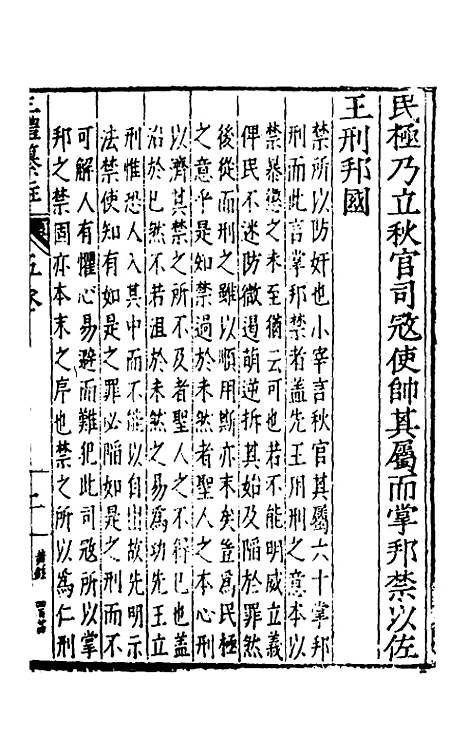 民極乃立秋官司寇使帥其屬而掌邦禁以佐
王刑邦國
禁所以防奸也小宰言秋官其屬六十掌邦
刑而此言掌邦禁者盖先王用刑之意本以
禁暴懲之未至猶云可也若不能明威立義
俾民不迷防微遏萌逆折其始及陷於罪然
後從而刑之雖以順用斯亦末矣豈爲民極
之意乎是知禁過於未然者聖人之本心刑
以濟其禁之所不及者聖人之不得已也盖
治於已然不若沮於未然之易爲功先王立
刑惟恐人入其中而不能以自出故先明示
法禁使知有如是之罪必陷如是之刑而不
可解人有懼心易避而難犯此司寇所以掌
邦之禁固亦本末之序也禁之所以爲仁刑
三禮纂註 五卷